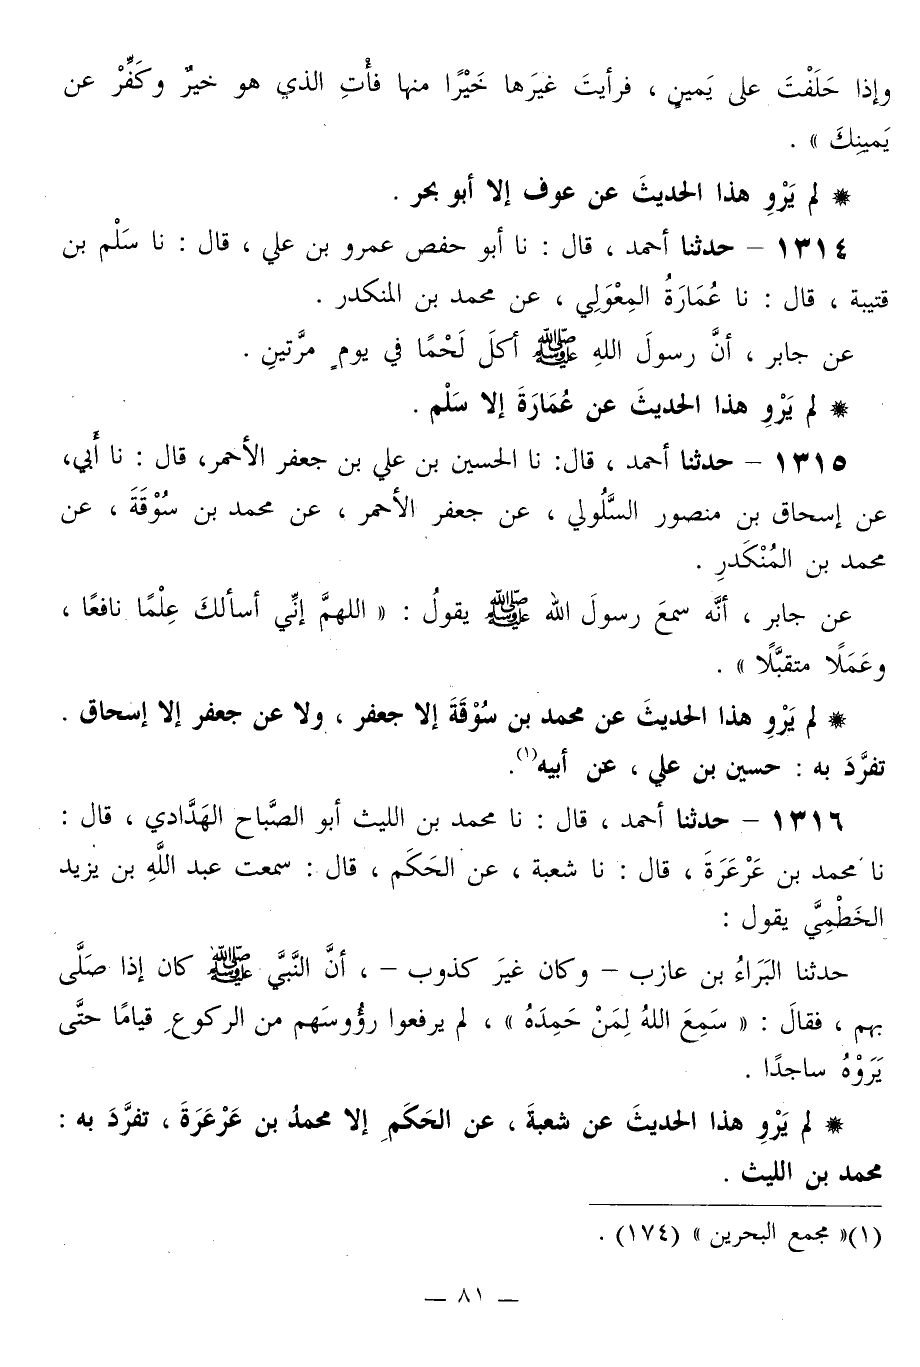 وإذا حَلَفْتَ على يَمينٍ ، فرأيتَ غيرَها خَيْرًا منها فأْتِ الذي هو خيرٌ وكَفِّرْ عن
يَمينِكَ » .
* لم يَرْوِ هذا الحديثَ عن عوف إلا أبو بحر .
١٣١٤ – حدثنا أحمد ، قال : نا أبو حفص عمرو بن علي ، قال : نا سَلْم بن
قتيبة ، قال : نا عُمَارَةُ المِعْوَلِي ، عن محمد بن المنكدر .
عن جابر ، أنَّ رسولَ اللهِ ﷺ أكلَ لَحْمًا في يومٍ مرَّتينِ .
* لم يَرْوِ هذا الحديثَ عن عُمَارَةَ إلا سَلْم .
١٣١٥ – حدثنا أحمد ، قال: نا الحسين بن علي بن جعفر الأحمر، قال : نا أَبي،
عن إسحاق بن منصور السَّلُولي ، عن جعفر الأحمر ، عن محمد بن سُوْقَةَ ، عن
محمد بن المُنْكَدرِ .
عن جابر ، أنَّه سمعَ رسولَ الله ﷺ يقولُ : « اللهمَّ إنِّي أسألكَ عِلْمًا نافعًا ،
وعَمَلًا متقبَّلًا » .
* لم يَرْوِ هذا الحديثَ عن محمد بن سُوْقَةَ إلا جعفر ، ولا عن جعفر إلا إسحاق .
تفرَّدَ به : حسين بن علي ، عن أبيه(١).
١٣١٦ – حدثنا أحمد ، قال : نا محمد بن الليث أبو الصَّباح الهَدَّادي ، قال :
نا محمد بن عَرْعَرَةَ ، قال : نا شعبة ، عن الحَكَم ، قال : سمعت عبد اللَّهِ بن يزيد
الخَطْمِيَّ يقول :
حدثنا البَرَاءُ بن عازب – وكان غيرَ كذوب – ، أنَّ النَّبيَّ ﷺ كان إذا صَلَّى
بهم ، فقالَ : « سَمِعَ اللهُ لِمَنْ حَمِدَهُ » ، لم يرفعوا رؤُوسَهم من الركوعِ قيامًا حتَّى
يَرَوْهُ ساجدًا .
* لم يَرْوِ هذا الحديثَ عن شعبةَ ، عن الحَكَمِ إلا محمدُ بن عَرْعَرَةَ ، تفرَّدَ به :
محمد بن الليث .
(١)« مجمع البحرين » (١٧٤) .
— ٨١ —